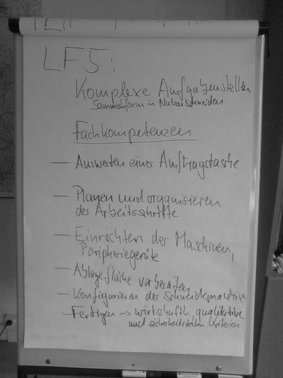 LF5:
Komplexe Aufgabenstellen
Sonderform in Nutzeinheiten
Fachkompetenzen
— Auswerten einer Auftragstasche
— Planen und organisieren
des Arbeitsschritte
— Einrichten der Maschinen,
Peripheriegeräte
— Ablagefläche vorbereiten
— Konfigurieren des
— Fertigen → wirtschaftl., qualitative
und sicherheitstechn. Kriterien